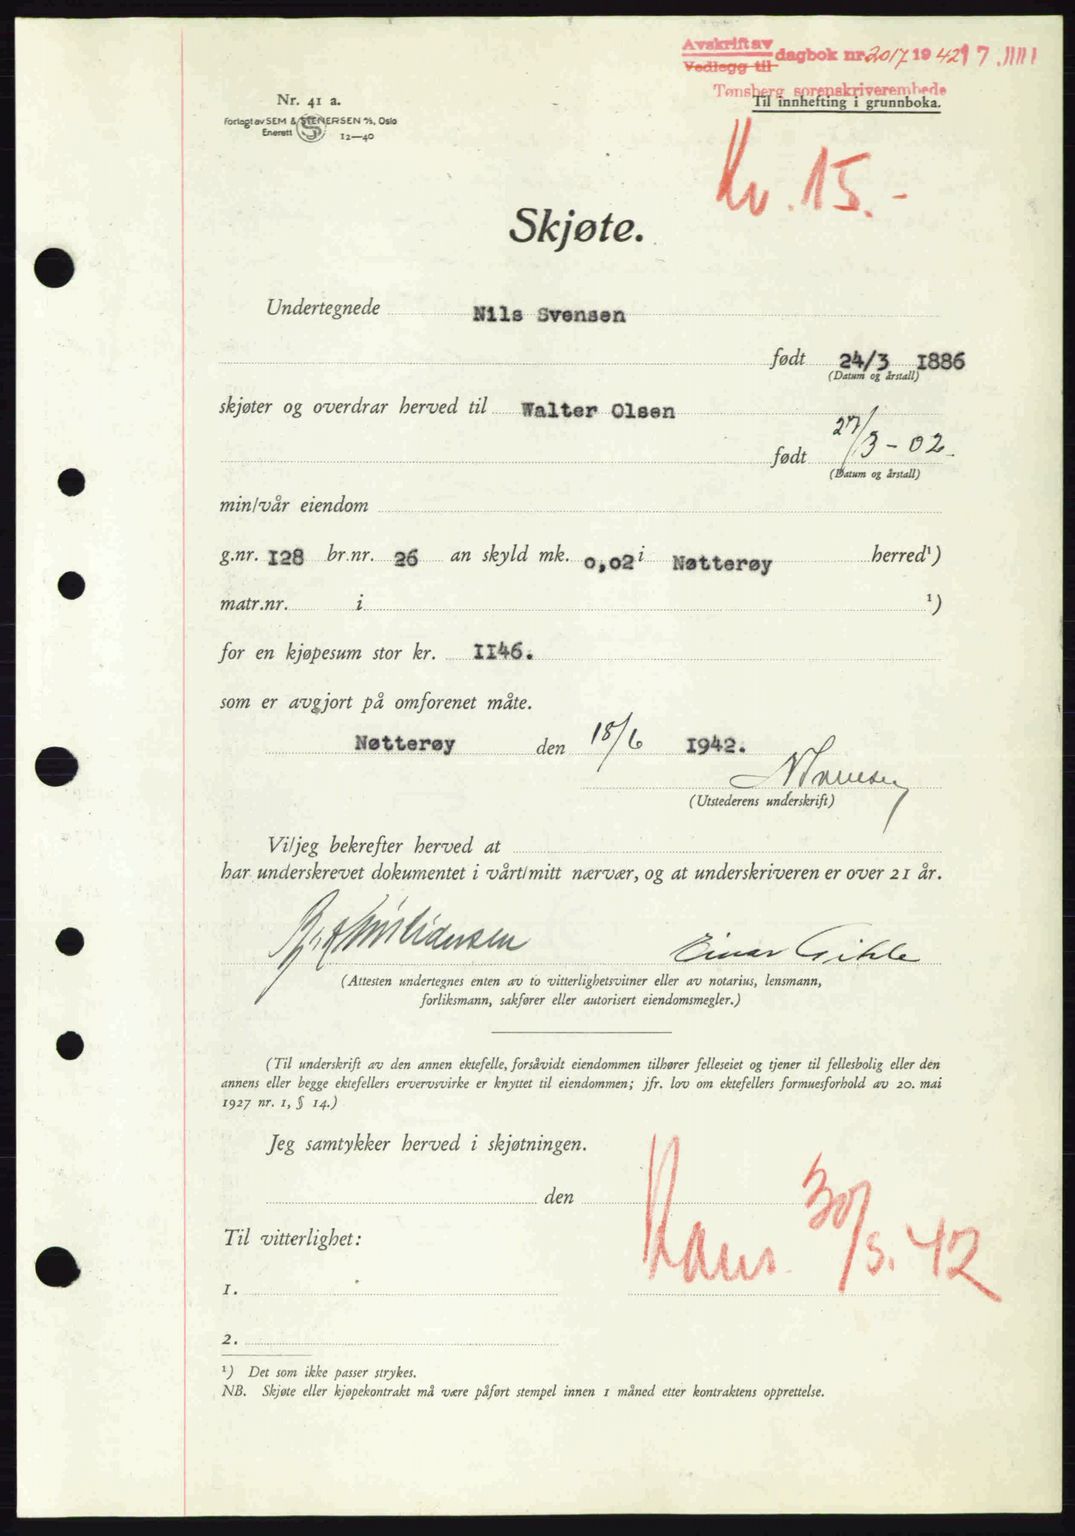 Avskrift av
Vedlegg til dagbok nr 2017 1942
Tønsberg sorenskriverembede
Til innhefting i grunnboka.
Nr. 41 a.
Forlagt av SEM & STENERSEN A/S, Oslo
Enerett 12—40
Kr. 15.-
Skjøte.
Undertegnede Nils Svensen
født 24/3 1886
(Datum og årstall)
skjøter og overdrar herved til Walter Olsen
født 27/3-02
(Datum og årstall)
min/vår eiendom
g.nr. 128 br.nr. 26 an skyld mk. 0,02 i Nøtterøy herred¹)
matr.nr. i ¹)
for en kjøpesum stor kr. 1146.
som er avgjort på omforenet måte.
Nøtterøy den 18/6 1942.
(Utstederens underskrift)
Vi/jeg bekrefter herved at
har underskrevet dokumentet i vårt/mitt nærvær, og at underskriveren er over 21 år.
Einar Gihle
(Attesten undertegnes enten av to vitterlighetsvitner eller av notarius, lensmann,
forliksmann, sakfører eller autorisert eiendomsmegler.)
(Til underskrift av den annen ektefelle, forsåvidt eiendommen tilhører felleseiet og tjener til fellesbolig eller den
annens eller begge ektefellers ervervsvirke er knyttet til eiendommen; jfr. lov om ektefellers formuesforhold av 20. mai
1927 nr. 1, § 14.)
Jeg samtykker herved i skjøtningen.
den
30/5.42
Til vitterlighet:
1.
2.
¹) Det som ikke passer strykes.
NB. Skjøte eller kjøpekontrakt må være påført stempel innen 1 måned etter kontraktens opprettelse.